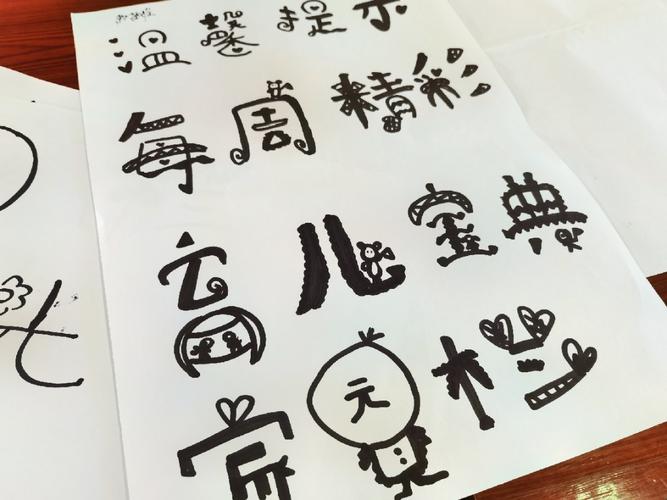 温馨提示
每周精彩
育儿宝典
家园栏